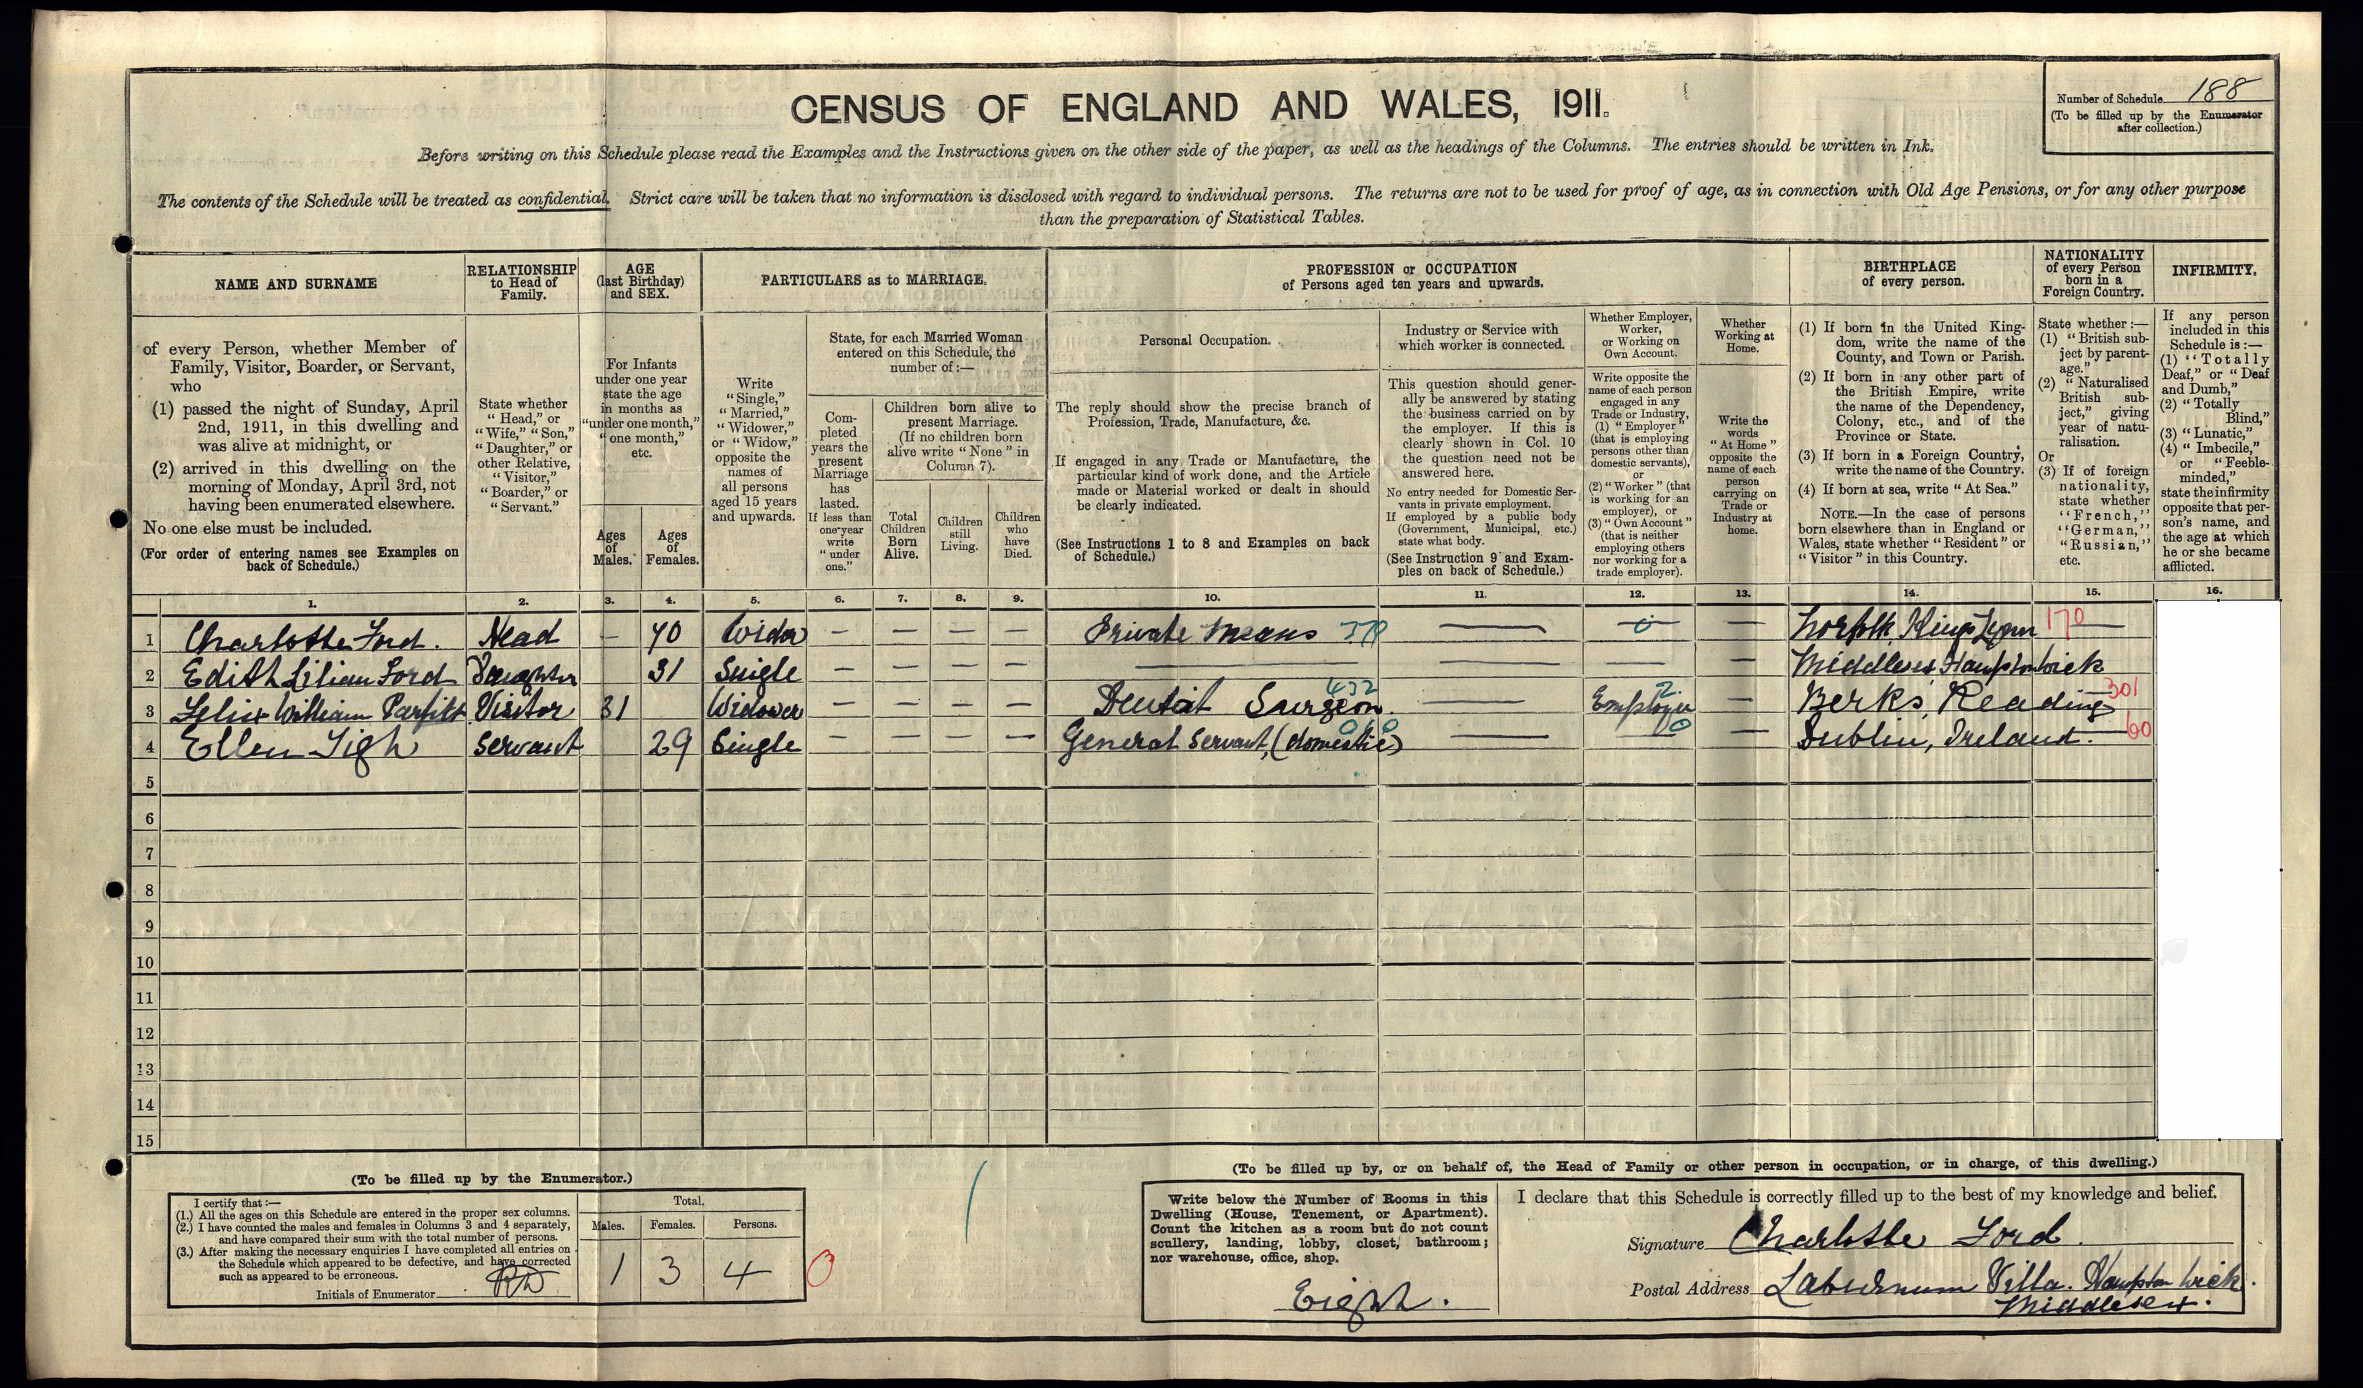 CENSUS OF ENGLAND AND WALES, 1911.
Number of Schedule 188
(To be filled up by the Enumerator
after collection.)
Before writing on this Schedule please read the Examples and the Instructions given on the other side of the paper, as well as the headings of the Columns. The entries should be written in Ink.
The contents of the Schedule will be treated as confidential. Strict care will be taken that no information is disclosed with regard to individual persons. The returns are not to be used for proof of age, as in connection with Old Age Pensions, or for any other purpose
than the preparation of Statistical Tables.
NAME AND SURNAME
of every Person, whether Member of
Family, Visitor, Boarder, or Servant,
who
(1) passed the night of Sunday, April
2nd, 1911, in this dwelling and
was alive at midnight, or
(2) arrived in this dwelling on the
morning of Monday, April 3rd, not
having been enumerated elsewhere.
No one else must be included.
(For order of entering names see Examples on
back of Schedule.)
RELATIONSHIP
to Head of
Family.
State whether
"Head," or
"Wife," "Son,"
"Daughter," or
other Relative,
"Visitor,"
"Boarder," or
"Servant."
AGE
(last Birthday)
and SEX.
For Infants
under one year
state the age
in months as
"under one month,"
"one month,"
etc.
Ages
of
Males.
Ages
of
Females.
PARTICULARS as to MARRIAGE.
Write
"Single,"
"Married,"
"Widower,"
or "Widow,"
opposite the
names of
all persons
aged 15 years
and upwards.
State, for each Married Woman
entered on this Schedule, the
number of :—
Com-
pleted
years the
present
Marriage
has
lasted.
If less than
one year
write
"under
one."
Children born alive to
present Marriage.
(If no children born
alive write "None" in
Column 7).
Total
Children
Born
Alive.
Children
still
Living.
Children
who
have
Died.
PROFESSION or OCCUPATION
of Persons aged ten years and upwards.
Personal Occupation.
The reply should show the precise branch of
Profession, Trade, Manufacture, &c.
If engaged in any Trade or Manufacture, the
particular kind of work done, and the Article
made or Material worked or dealt in should
be clearly indicated.
(See Instructions 1 to 8 and Examples on back
of Schedule.)
Industry or Service with
which worker is connected.
This question should gener-
ally be answered by stating
the business carried on by
the employer. If this is
clearly shown in Col. 10
the question need not be
answered here.
No entry needed for Domestic Ser-
vants in private employment.
If employed by a public body
(Government, Municipal, etc.)
state what body.
(See Instruction 9 and Exam-
ples on back of Schedule.)
Whether Employer,
Worker,
or Working on
Own Account.
Write opposite the
name of each person
engaged in any
Trade or Industry,
(1) "Employer"
(that is employing
persons other than
domestic servants),
or
(2) "Worker" (that
is working for an
employer), or
(3) "Own Account"
(that is neither
employing others
nor working for a
trade employer).
Whether
Working at
Home.
Write the
words
"At Home"
opposite the
name of each
person
carrying on
Trade or
Industry at
home.
BIRTHPLACE
of every person.
(1) If born in the United King-
dom, write the name of the
County, and Town or Parish.
(2) If born in any other part of
the British Empire, write
the name of the Dependency,
Colony, etc., and of the
Province or State.
(3) If born in a Foreign Country,
write the name of the Country.
(4) If born at sea, write "At Sea."
NOTE.—In the case of persons
born elsewhere than in England or
Wales, state whether "Resident" or
"Visitor" in this Country.
NATIONALITY
of every Person
born in a
Foreign Country.
State whether :—
(1) "British sub-
ject by parent-
age."
(2) "Naturalised
British sub-
ject," giving
year of natu-
ralisation.
Or
(3) If of foreign
nationality,
state whether
"French,"
"German,"
"Russian,"
etc.
INFIRMITY.
If any person
included in this
Schedule is :—
(1) "Totally
Deaf," or "Deaf
and Dumb,"
(2) "Totally
Blind,"
(3) "Lunatic,"
(4) "Imbecile,"
or "Feeble-
minded,"
state the infirmity
opposite that per-
son's name, and
the age at which
he or she became
afflicted.
1. 2. 3. 4. 5. 6. 7. 8. 9. 10. 11. 12. 13. 14. 15. 16.
1 Charlotte Ford. Head — 70 Widow — — — — Private Means 379 — 0 — Norfolk, Kings Lynn 170
2 Edith Lilian Ford Daughter 31 Single — — — — — — — — Middlesex, Hampton Wick
3 William Parfitt Visitor 31 Widower — — — — Dental Surgeon. 432 — Employer 2 — Berks, Reading 301
4 Ellen Tigh Servant 29 Single — — — — General Servant, (domestic) 060 — 0 — Dublin, Ireland. 60
5
6
7
8
9
10
11
12
13
14
15
(To be filled up by the Enumerator.)
I certify that :—
(1.) All the ages on this Schedule are entered in the proper sex columns.
(2.) I have counted the males and females in Columns 3 and 4 separately,
and have compared their sum with the total number of persons.
(3.) After making the necessary enquiries I have completed all entries on
the Schedule which appeared to be defective, and have corrected
such as appeared to be erroneous.
Initials of Enumerator
Total.
Males. Females. Persons.
1 3 4 0
(To be filled up by, or on behalf of, the Head of Family or other person in occupation, or in charge, of this dwelling.)
Write below the Number of Rooms in this
Dwelling (House, Tenement, or Apartment).
Count the kitchen as a room but do not count
scullery, landing, lobby, closet, bathroom;
nor warehouse, office, shop.
Eight.
I declare that this Schedule is correctly filled up to the best of my knowledge and belief.
Signature Charlotte Ford.
Postal Address Laburnum Villa. Hampton Wick.
Middlesex.